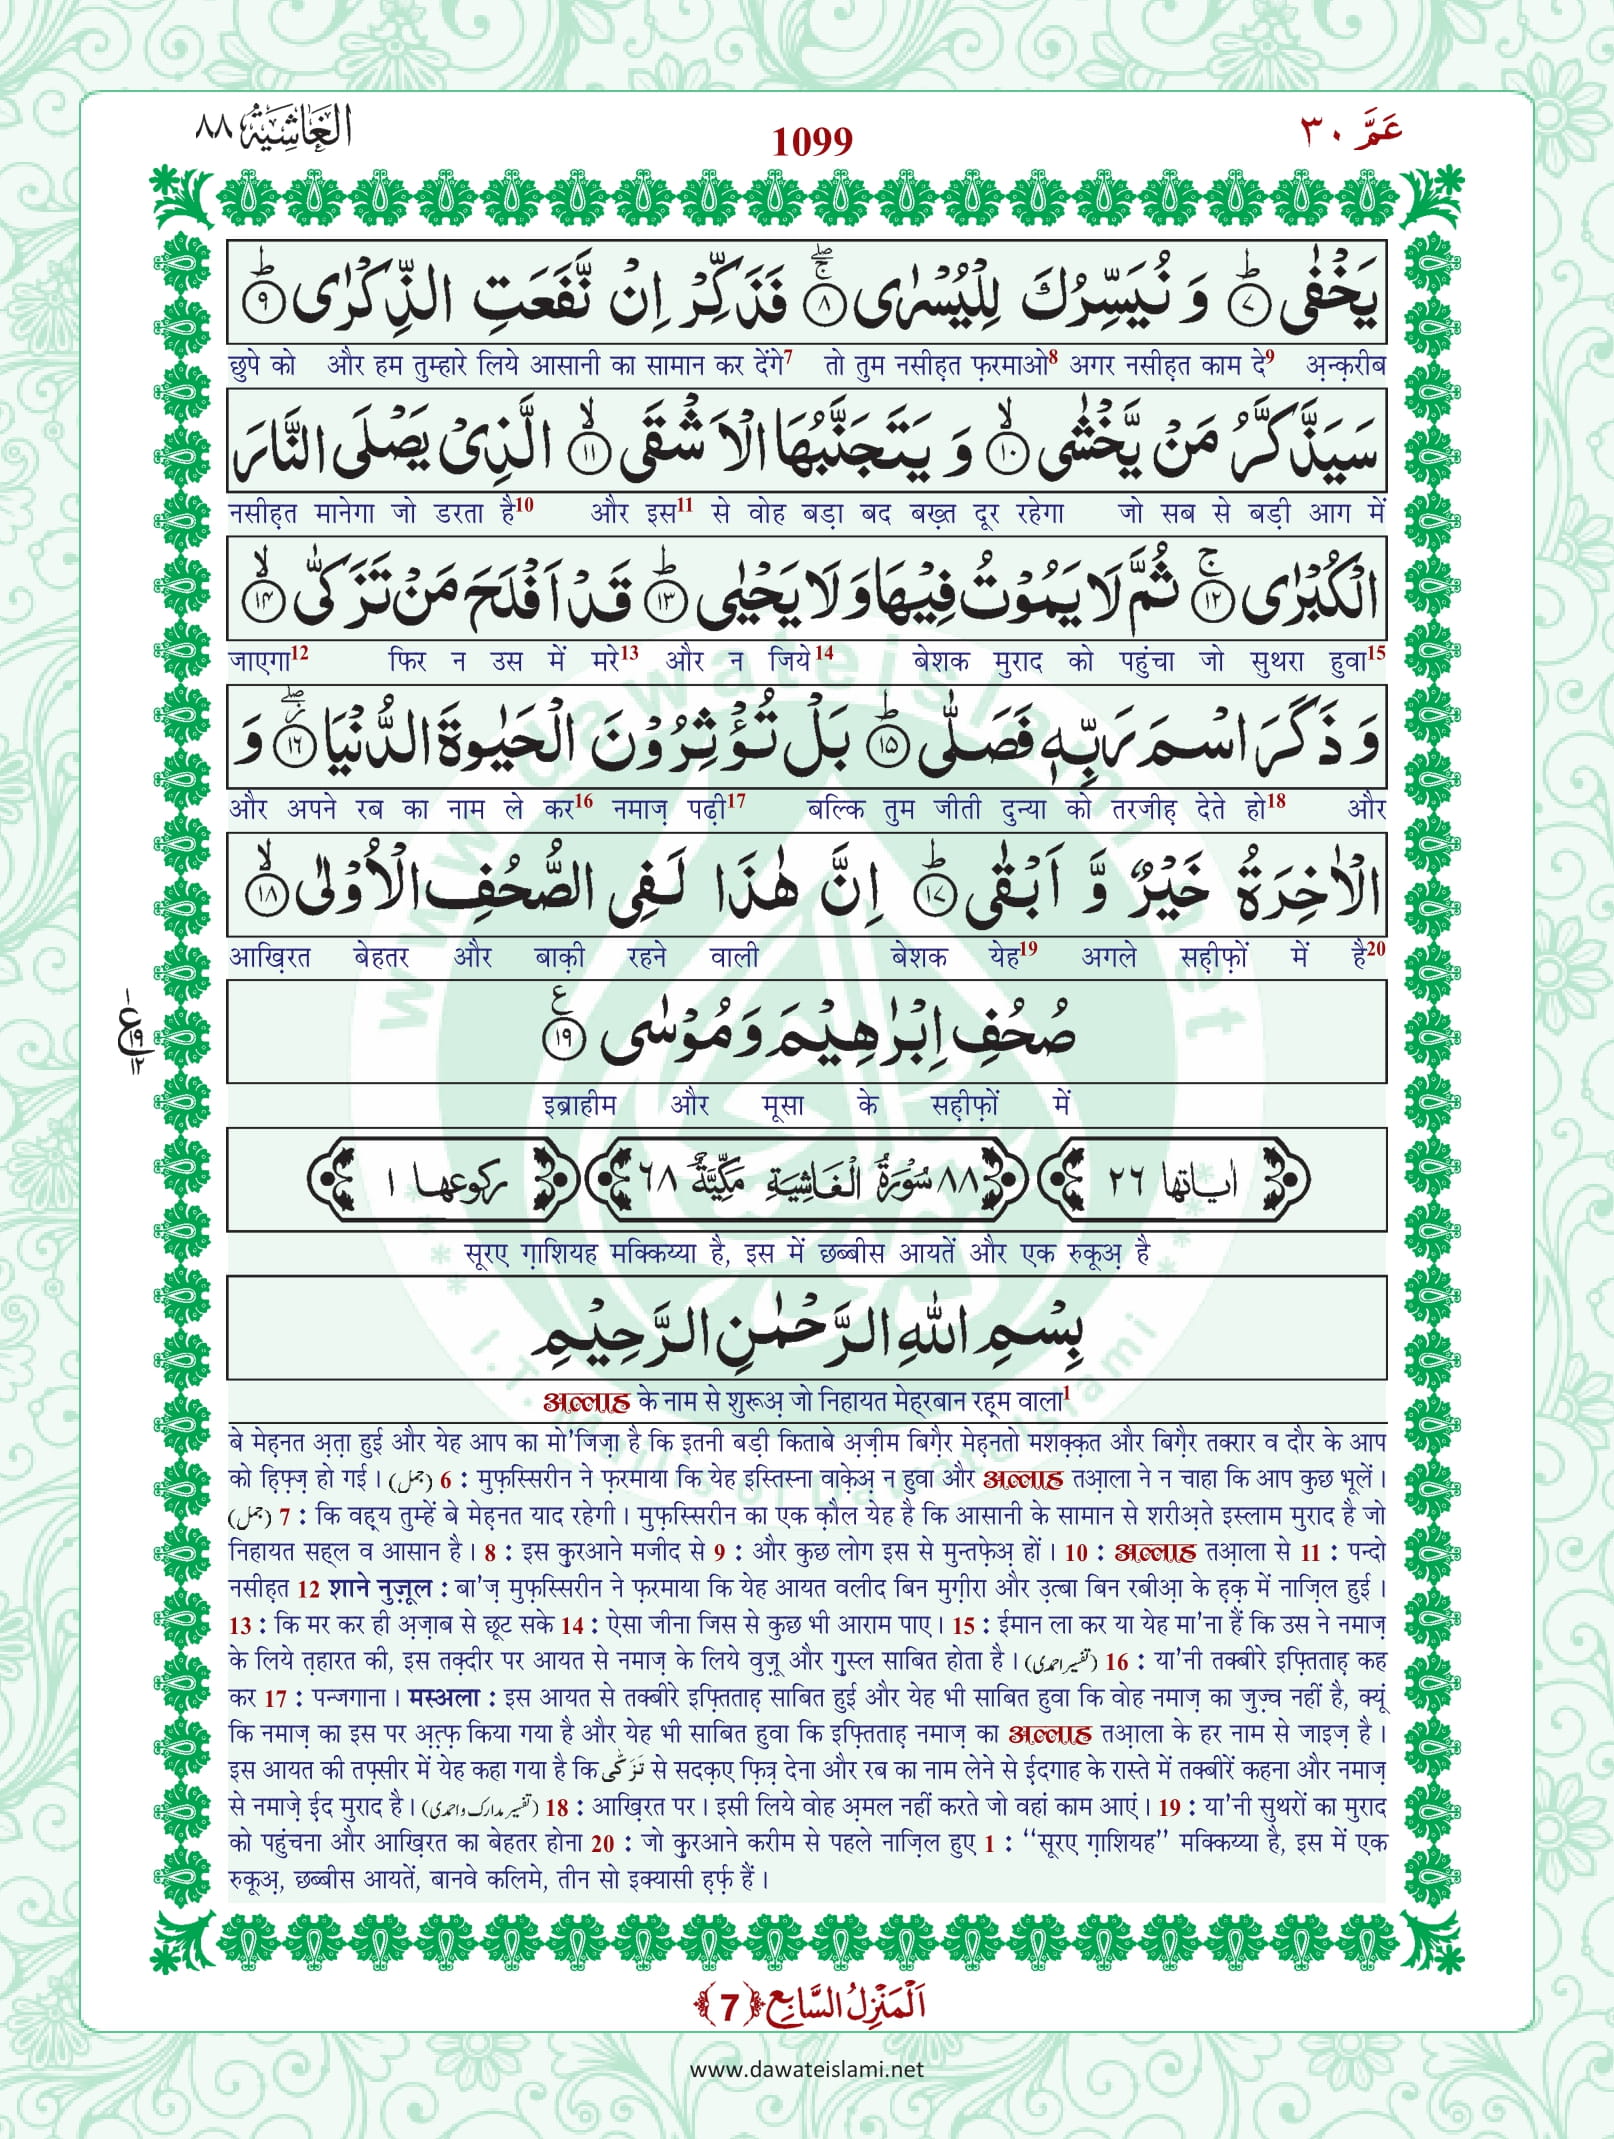 عَمَّ ٣٠
1099
الْغَاشِيَة ٨٨
يَخْفٰى ؕ﴿۷﴾ وَ نُيَسِّرُكَ لِلْيُسْرٰى ۚۖ﴿۸﴾ فَذَكِّرْ اِنْ نَّفَعَتِ الذِّكْرٰى ؕ﴿۹﴾
छुपे को और हम तुम्हारे लिये आसानी का सामान कर देंगे7 तो तुम नसीह़त फ़रमाओ8 अगर नसीह़त काम दे9 अ़न्क़रीब
سَيَذَّكَّرُ مَنْ يَّخْشٰى ۙ﴿۱۰﴾ وَ يَتَجَنَّبُهَا الْاَشْقَى ۙ﴿۱۱﴾ الَّذِیْ يَصْلَى النَّارَ
नसीह़त मानेगा जो डरता है10 और इस11 से वोह बड़ा बद बख़्त दूर रहेगा जो सब से बड़ी आग में
الْكُبْرٰى ۚ﴿۱۲﴾ ثُمَّ لَا يَمُوْتُ فِيْهَا وَ لَا يَحْيٰى ؕ﴿۱۳﴾ قَدْ اَفْلَحَ مَنْ تَزَكّٰى ۙ﴿۱۴﴾
जाएगा12 फिर न उस में मरे13 और न जिये14 बेशक मुराद को पहुंचा जो सुथरा हुवा15
وَ ذَكَرَ اسْمَ رَبِّهٖ فَصَلّٰى ؕ﴿۱۵﴾ بَلْ تُؤْثِرُوْنَ الْحَيٰوةَ الدُّنْيَا ۫ۖ﴿۱۶﴾ وَ
और अपने रब का नाम ले कर16 नमाज़ पढ़ी17 बल्कि तुम जीती दुन्या को तरजीह़ देते हो18 और
الْاٰخِرَةُ خَيْرٌ وَّ اَبْقٰى ؕ﴿۱۷﴾ اِنَّ هٰذَا لَفِی الصُّحُفِ الْاُوْلٰى ۙ﴿۱۸﴾
आख़िरत बेहतर और बाक़ी रहने वाली बेशक येह19 अगले सह़ीफ़ों में है20
صُحُفِ اِبْرٰهِيْمَ وَ مُوْسٰى ﴿۱۹﴾ ع
ع ١ ١٩ ١٢
इब्राहीम और मूसा के सह़ीफ़ों में
اٰیاتها ٢٦ ٨٨ سُوْرَةُ الْغَاشِيَةِ مَكِّيَّةٌ ٦٨ ركوعها ١
सूरए ग़ाशियह मक्किय्या है, इस में छब्बीस आयतें और एक रुकूअ़ है
بِسْمِ اللهِ الرَّحْمٰنِ الرَّحِيْمِ
अल्लाह के नाम से शुरूअ़ जो निहायत मेह्रबान रह़्म वाला1
बे मेह़नत अ़त़ा हुई और येह आप का मो'जिज़ा है कि इतनी बड़ी किताबे अ़ज़ीम बिग़ैर मेह़नतो मशक़्क़त और बिग़ैर तक्रार व दौर के आप
को ह़िफ़्ज़ हो गई। (جمل) 6 : मुफ़स्सिरीन ने फ़रमाया कि येह इस्तिस्ना वाक़ेअ़ न हुवा और अल्लाह तआ़ला ने न चाहा कि आप कुछ भूलें।
(جمل) 7 : कि वह़्य तुम्हें बे मेह़नत याद रहेगी। मुफ़स्सिरीन का एक क़ौल येह है कि आसानी के सामान से शरीअ़ते इस्लाम मुराद है जो
निहायत सह्ल व आसान है। 8 : इस क़ुरआने मजीद से 9 : और कुछ लोग इस से मुन्तफ़ेअ़ हों। 10 : अल्लाह तआ़ला से 11 : पन्दो
नसीह़त 12 शाने नुज़ूल : बा'ज़ मुफ़स्सिरीन ने फ़रमाया कि येह आयत वलीद बिन मुग़ीरा और उ़त्बा बिन रबीआ़ के ह़क़ में नाज़िल हुई।
13 : कि मर कर ही अ़ज़ाब से छूट सके 14 : ऐसा जीना जिस से कुछ भी आराम पाए। 15 : ईमान ला कर या येह मा'ना हैं कि उस ने नमाज़
के लिये त़हारत की, इस तक़्दीर पर आयत से नमाज़ के लिये वुज़ू और ग़ुस्ल साबित होता है। (تفسیر احمدی) 16 : या'नी तक्बीरे इफ़्तिताह़ कह
कर 17 : पन्जगाना। मस्अला : इस आयत से तक्बीरे इफ़्तिताह़ साबित हुई और येह भी साबित हुवा कि वोह नमाज़ का जुज़्व नहीं है, क्यूं
कि नमाज़ का इस पर अ़त्फ़ किया गया है और येह भी साबित हुवा कि इफ़्तिताह़ नमाज़ का अल्लाह तआ़ला के हर नाम से जाइज़ है।
इस आयत की तफ़्सीर में येह कहा गया है कि تَزَكّٰى से सदक़ए फ़ित्र देना और रब का नाम लेने से ईदगाह के रास्ते में तक्बीरें कहना और नमाज़
से नमाज़े ई़द मुराद है। (تفسیر مدارک و احمدی) 18 : आख़िरत पर। इसी लिये वोह अ़मल नहीं करते जो वहां काम आएं। 19 : या'नी सुथरों का मुराद
को पहुंचना और आख़िरत का बेहतर होना 20 : जो क़ुरआने करीम से पहले नाज़िल हुए 1 : ‘‘सूरए ग़ाशियह’’ मक्किय्या है, इस में एक
रुकूअ़, छब्बीस आयतें, बानवे कलिमे, तीन सो इक्यासी ह़र्फ़ हैं।
اَلْمَنْزِلُ السَّابِع ﴿7﴾
www.dawateislami.net
www.dawateislami.net
I.T. Majlis of DawateIslami